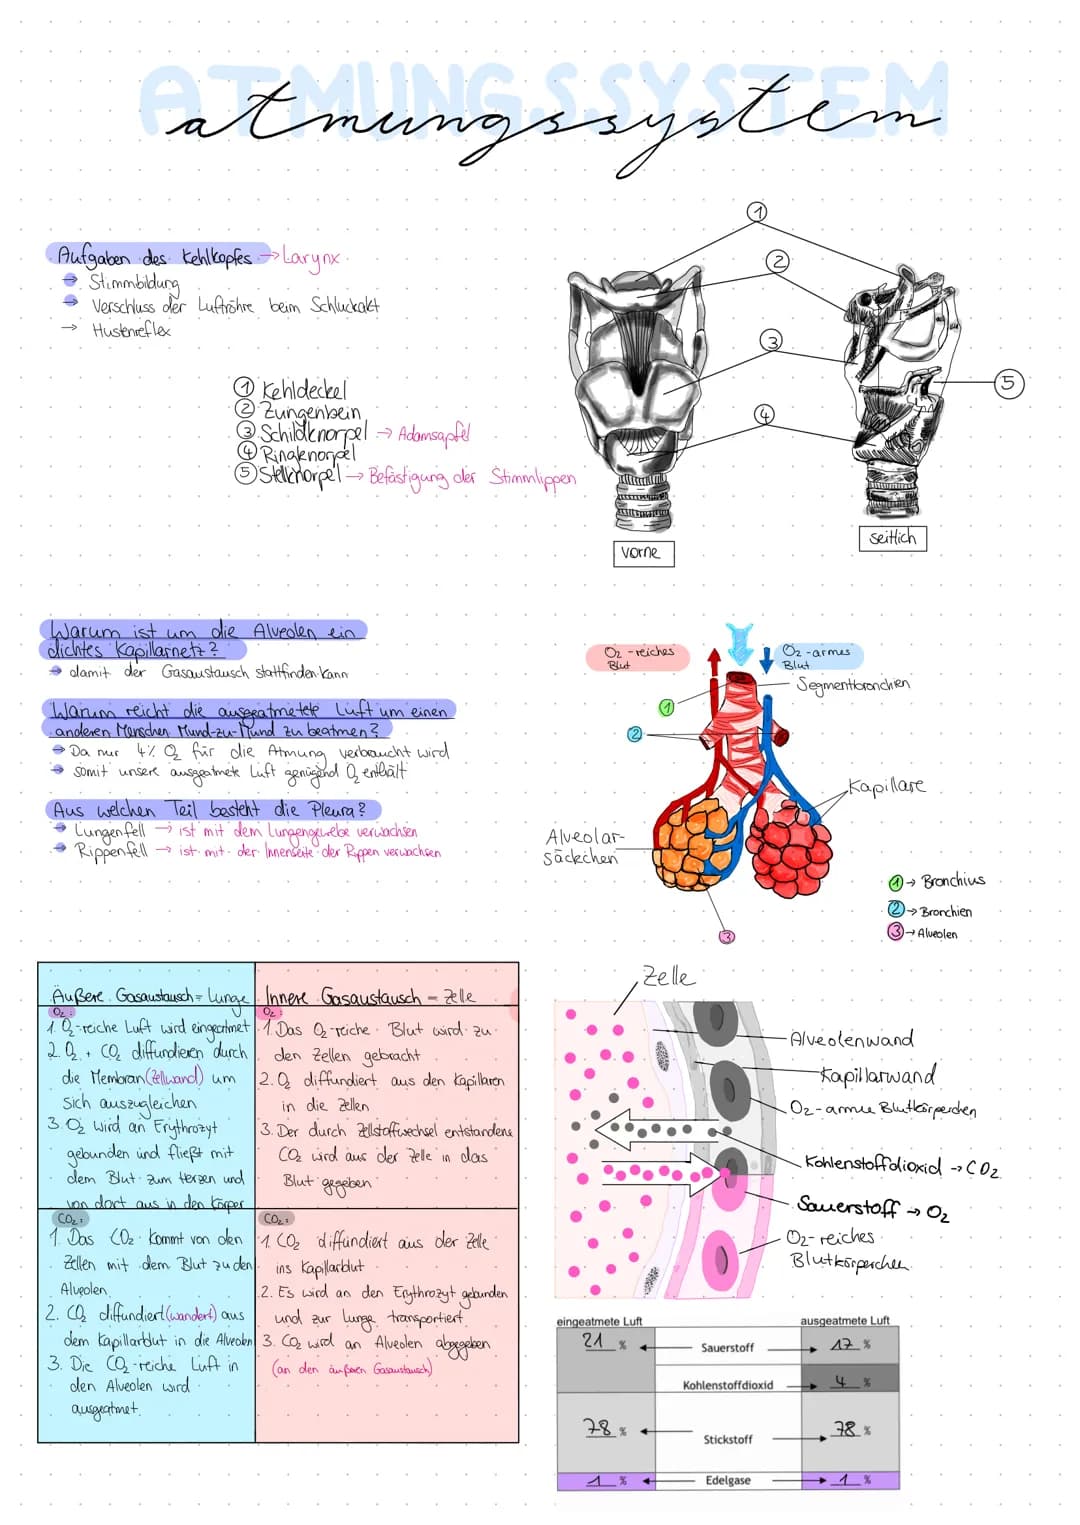 ATMUNGSSYSTEM
atmungssystem
Aufgaben des Kehlkopfes → Larynx
→ Stimmbildung
→ Verschluss der Luftröhre beim Schluckakt
→ Hustenreflex
① Kehldeckel
② Zungenbein
③ Schildknorpel → Adamsapfel
④ Ringknorpel
⑤ Stellknorpel → Befästigung der Stimmlippen
1
2
3
4
5
vorne
seitlich
Warum ist um die Alveolen ein
dichtes Kapillarnetz?
→ damit der Gasaustausch stattfinden kann
Warum reicht die ausgeatmete Luft um einen
anderen Menschen Mund-zu-Mund zu beatmen?
→ Da nur 4% O₂ für die Atmung verbraucht wird
→ somit unsere ausgeatmete Luft genügend O₂ enthält
Aus welchen Teil besteht die Pleura?
→ Lungenfell → ist mit dem Lungengewebe verwachsen
→ Rippenfell → ist mit der Innenseite der Rippen verwachsen
O₂-reiches
Blut
O₂-armes
Blut
Segmentbronchien
1
2
Kapillare
Alveolar-
säckchen
3
① → Bronchius
② → Bronchien
③ → Alveolen
Äußere Gasaustausch = Lunge
O₂:
1. O₂-reiche Luft wird eingeatmet
2. O₂ + CO₂ diffundieren durch
die Membran (Zellwand) um
sich auszugleichen
3. O₂ wird an Erythrozyt
gebunden und fließt mit
dem Blut zum Herzen und
von dort aus in den Körper
CO₂:
1. Das CO₂ kommt von den
Zellen mit dem Blut zu den
Alveolen
2. CO₂ diffundiert (wandert) aus
dem Kapillarblut in die Alveolen
3. Die CO₂-reiche Luft in
den Alveolen wird
ausgeatmet.
Innere Gasaustausch = Zelle
O₂:
1. Das O₂-reiche Blut wird zu
den Zellen gebracht
2. O₂ diffundiert aus den Kapillaren
in die Zellen
3. Der durch Zellstoffwechsel entstandene
CO₂ wird aus der Zelle in das
Blut gegeben
CO₂:
1. CO₂ diffundiert aus der Zelle
ins Kapillarblut
2. Es wird an den Erythrozyt gebunden
und zur Lunge transportiert.
3. CO₂ wird an Alveolen abgegeben
(an den äußeren Gasaustausch)
Zelle
Alveolenwand
Kapillarwand
O₂-arme Blutkörperchen
Kohlenstoffdioxid → CO₂
Sauerstoff → O₂
O₂-reiches
Blutkörperchen
eingeatmete Luft
ausgeatmete Luft
21 %
Sauerstoff
17 %
Kohlenstoffdioxid
4 %
78 %
Stickstoff
78 %
1 %
Edelgase
1 %